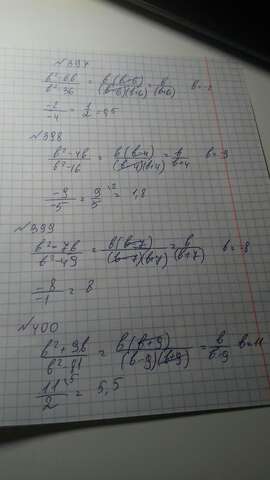 №397
(b²-6b)/(b²-36) = (b(b-6))/((b-6)(b+6)) = b/(b+6) b=-2
(-2)/(-4) = 1/2 = 0,5
№398
(b²-4b)/(b²-16) = (b(b-4))/((b-4)(b+4)) = b/(b+4) b=-9
(-9)/(-5) = 9/5 ·2 = 1,8
№399
(b²-7b)/(b²-49) = (b(b-7))/((b-7)(b+7)) = b/(b+7) b=-8
(-8)/(-1) = 8
№400
(b²+9b)/(b²-81) = (b(b+9))/((b-9)(b+9)) = b/(b-9) b=11
11/2 ·5 = 5,5